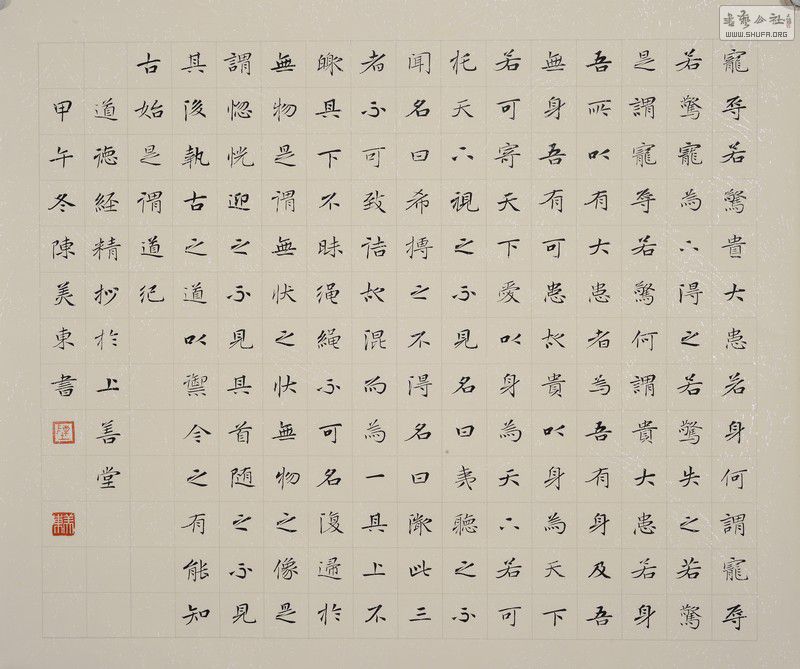 寵辱若驚貴大患若身何謂寵辱
若驚寵為下得之若驚失之若驚
是謂寵辱若驚何謂貴大患若身
吾所以有大患者為吾有身及吾
無身吾有可患故貴以身為天下
若可寄天下愛以身為天下若可
托天下視之不見名曰夷聽之不
聞名曰希搏之不得名曰微此三
者不可致詰故混而為一其上不
皦其下不昧绳绳不可名復歸於
無物是謂無状之状無物之像是
謂惚恍迎之不見其首随之不見
其後執古之道以禦今之有能知
古始是谓道纪
道德經精抄於上善堂
甲午冬陳美東書
美東
書藝公社
WWW.SHUFA.ORG